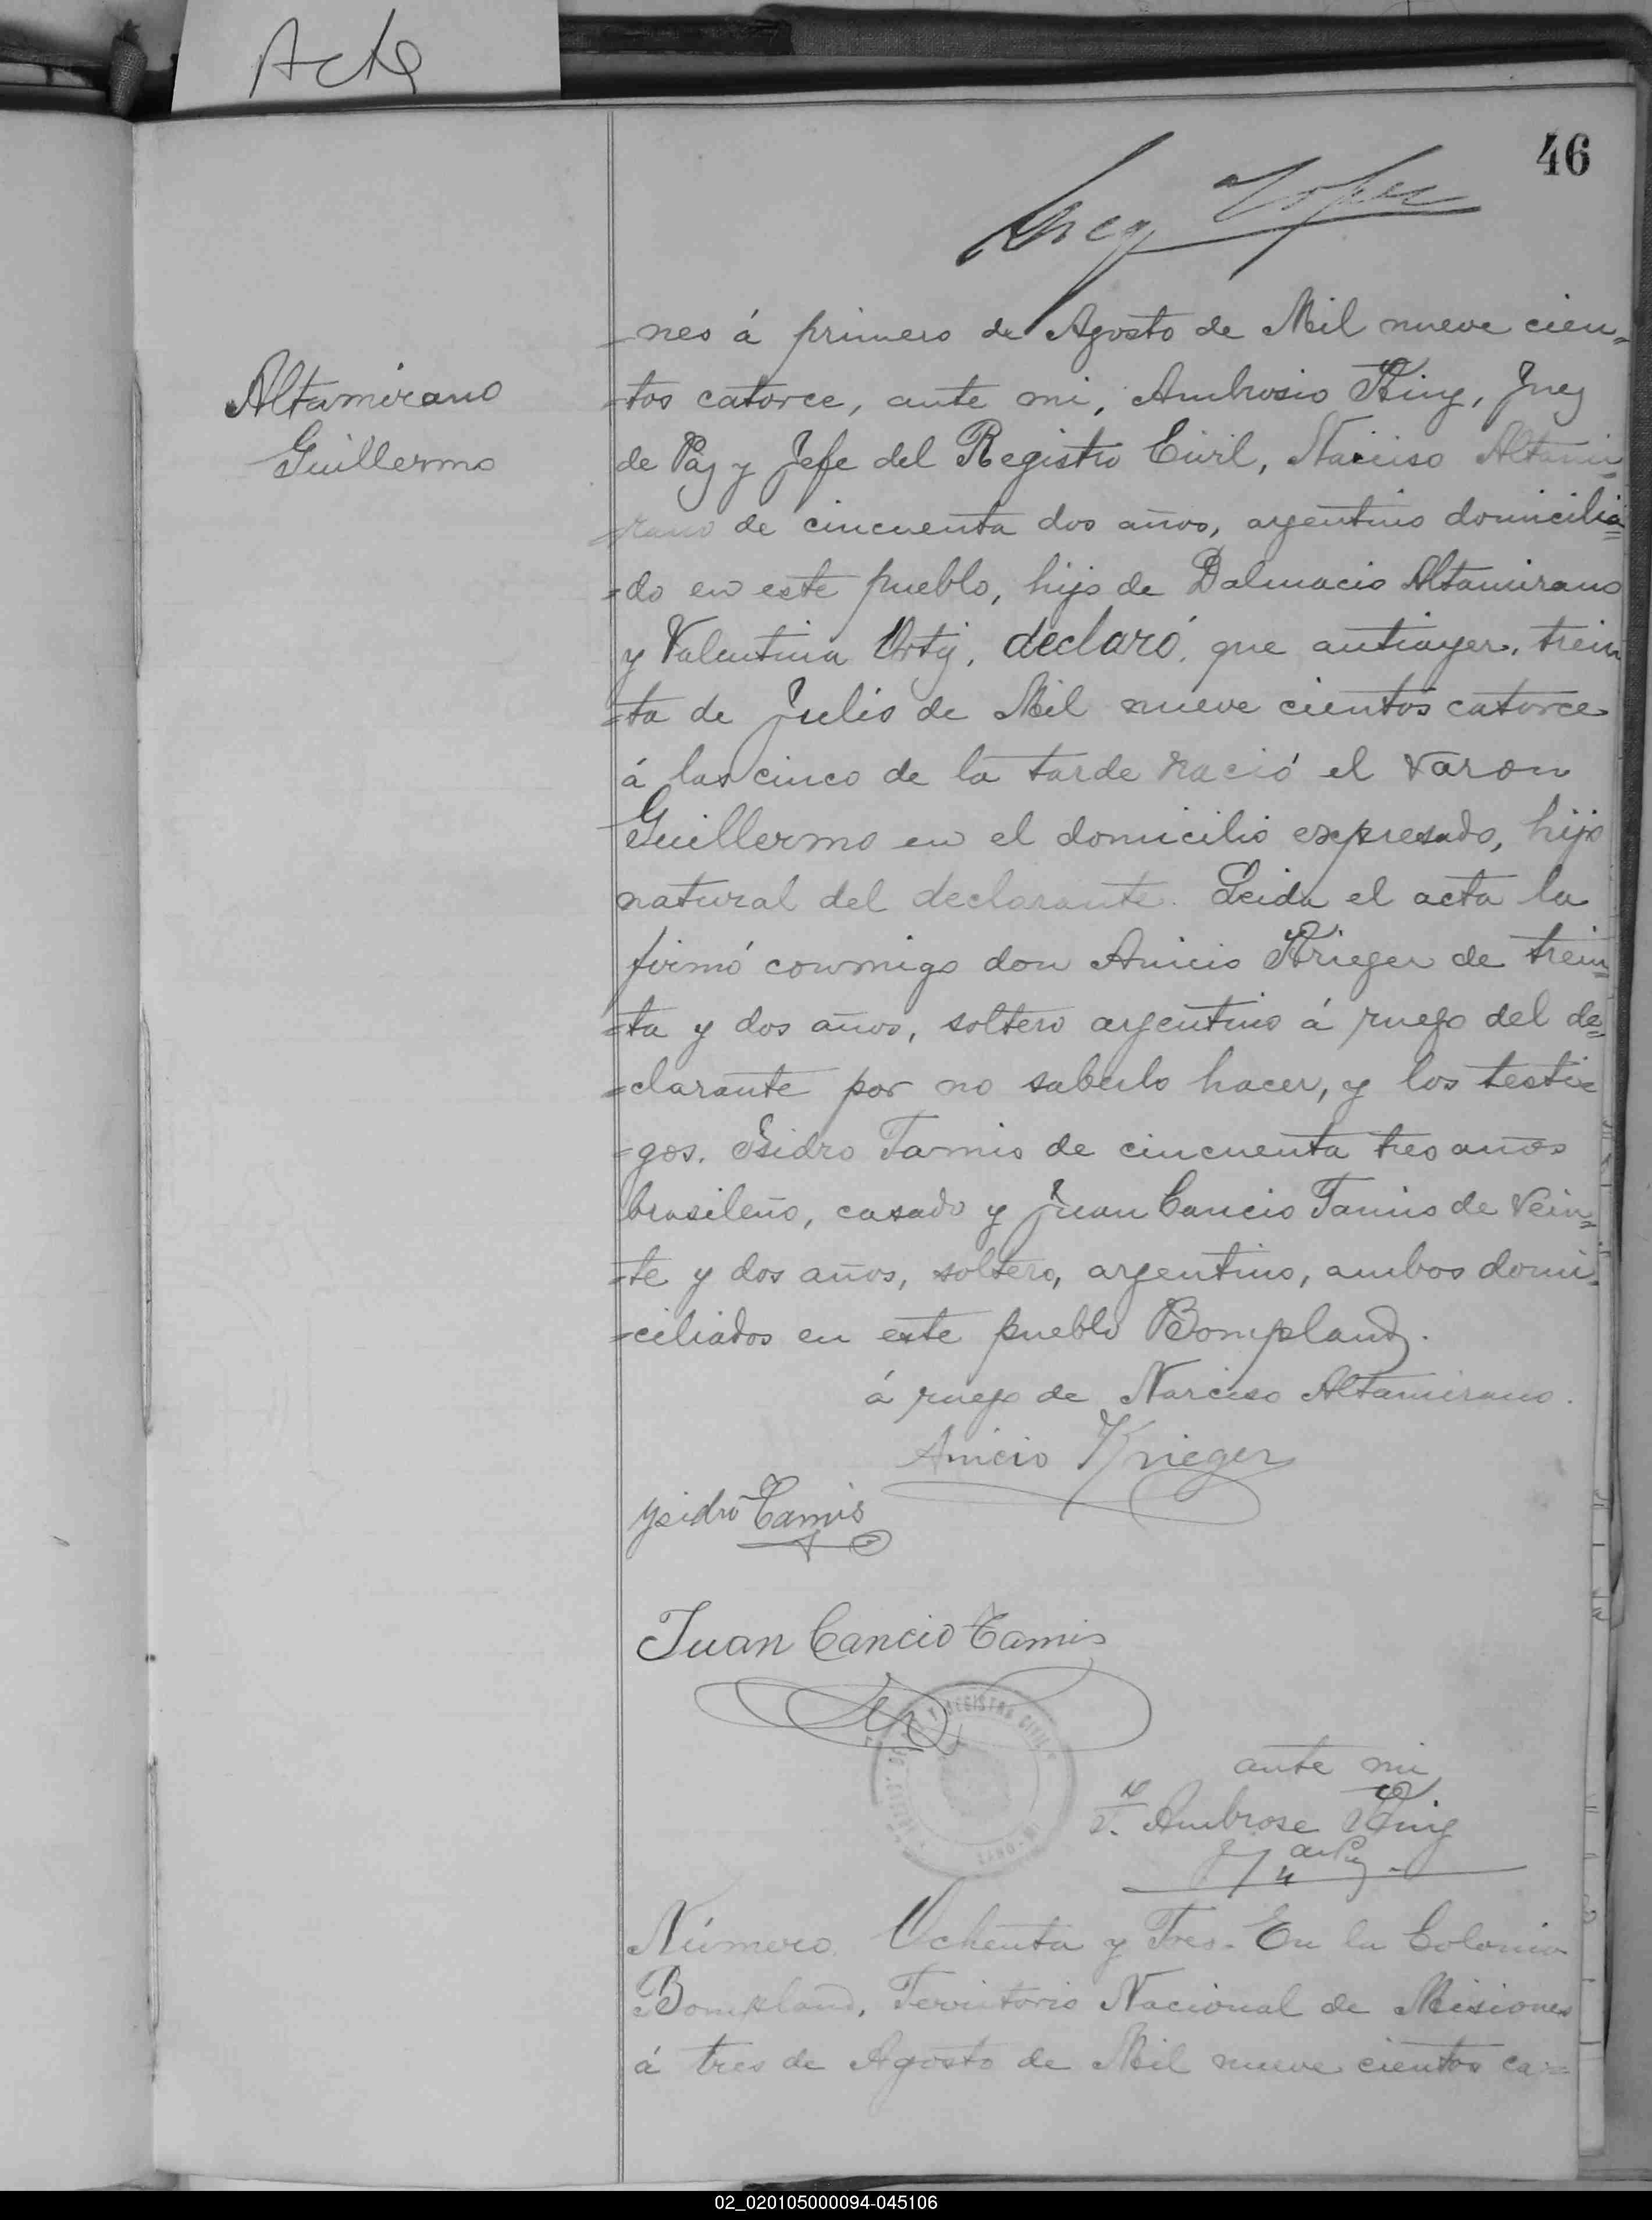 Acta
46
Altamirano
Guillermo
-nes á primero de Agosto de Mil nueve cien=
-tos catorce, ante mi, Ambrosio King, Juez
de Paz y Jefe del Registro Civil, Narciso Altami=
=rano de cincuenta dos años, argentino domicilia=
=do en este pueblo, hijo de Dalmacio Altamirano
y Valentina Ortiz, declaró, que antiayer, trein
=ta de Julio de Mil nueve cientos catorce
á las cinco de la tarde nació el varon
Guillermo en el domicilio expresado, hijo
natural del declarante. Leida el acta la
firmó conmigo don Anicio Krieger de trein=
=ta y dos años, soltero argentino á ruego del de=
=clarante por no saberlo hacer, y los testi=
=gos. Isidro Tamis de cincuenta tres años
brasileño, casado y Juan Cancio Tamis de Vein=
=te y dos años, soltero, argentino, ambos domi=
=ciliados en este pueblo Bompland.
á ruego de Narciso Altamirano.
Anicio Krieger
Ysidro Tamis
Juan Cancio Tamis
Y REGISTRO CIVIL
ante mi
Ambrose King
Número. Ochenta y Tres. En la Colonia
Bompland, Territorio Nacional de Misiones
á tres de Agosto de Mil nueve cientos ca=
02_020105000094-045106